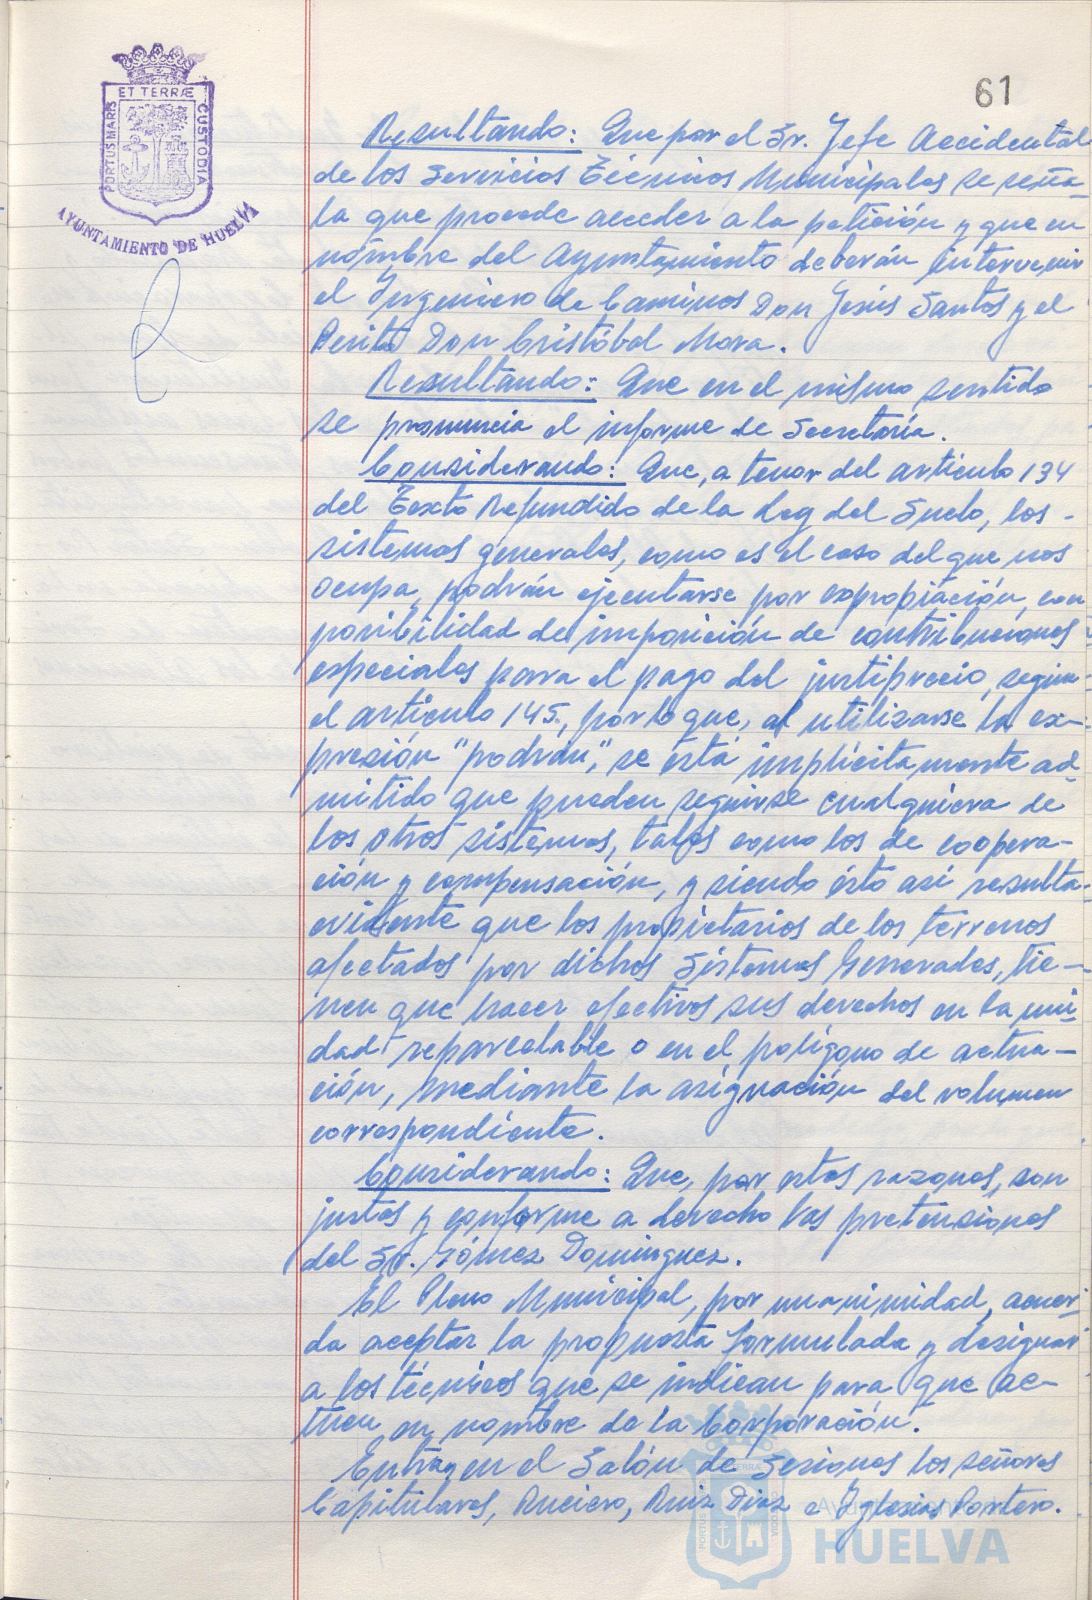 61
ET TERRÆ
PORTUS MARIS
CUSTODIA
AYUNTAMIENTO DE HUELVA
Resultando: Que por el Sr. Jefe Accidental
de los Servicios Técnicos Municipales se seña
la que procede acceder a la petición y que en
nombre del Ayuntamiento deberán intervenir
el Ingeniero de Caminos Don Jesús Santos y el
Perito Don Cristóbal Mora.
Resultando: Que en el mismo sentido
se pronuncia el informe de Secretaría.
Considerando: Que, a tenor del artículo 134
del Texto Refundido de la Ley del Suelo, los -
sistemas generales, como es el caso del que nos
ocupa, podrán ejecutarse por expropiación, con
posibilidad de imposición de contribuciones
especiales para el pago del justiprecio, según-
el artículo 145, por lo que, al utilizarse la ex-
presión "podrán", se está implícitamente ad-
mitido que pueden seguirse cualquiera de
los otros sistemas, tales como los de coopera-
ción y compensación, y siendo ésto así resulta-
evidente que los propietarios de los terrenos
afectados por dichos Sistemas Generales, tie-
nen que hacer efectivos sus derechos en la uni-
dad reparcelable o en el polígono de actua-
ción, mediante la asignación del volumen
correspondiente.
Considerando: Que, por estas razones, son
justas y conforme a derecho las pretensiones
del Sr. Gómez Domínguez.
El Pleno Municipal, por unanimidad, acuer-
da aceptar la propuesta formulada y designar
a los técnicos que se indican para que ac-
túen en nombre de la Corporación.
Entran en el Salón de Sesiones los señores
Capitulares, Anciero, Ruiz Díaz e Iglesias Pontero.
Ayuntamiento de
HUELVA